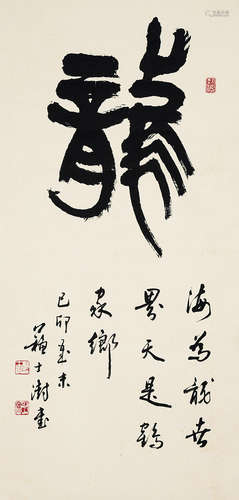 龍
海為龍世
界天是鶴
家鄉
己卯歲末
蘇士澍書